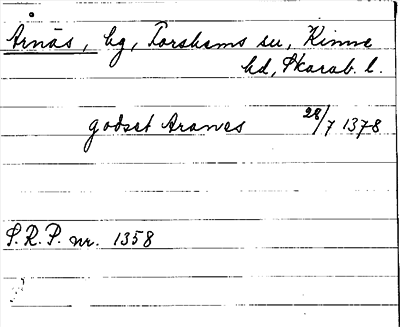 Årnäs, hg, Forshems sn, Kinne
hd, Skarab. l.
godset Aranes 28/7 1378
S.R.P. nr. 1358